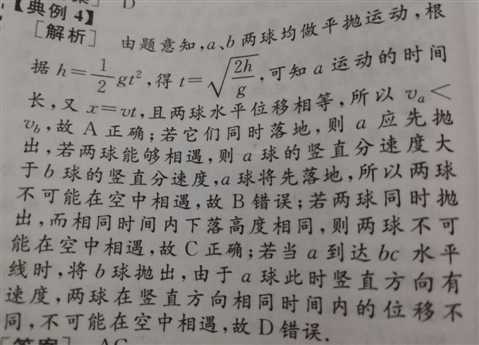 【典例4】
[解析] 由题意知,a、b两球均做平抛运动,根
据h=\frac{1}{2}gt²,得t=\sqrt{\frac{2h}{g}},可知a运动的时间
长,又x=vt,且两球水平位移相等,所以vₐ<
v_b,故A正确;若它们同时落地,则a应先抛
出,若两球能够相遇,则a球的竖直分速度大
于b球的竖直分速度,a球将先落地,所以两球
不可能在空中相遇,故B错误;若两球同时抛
出,而相同时间内下落高度相同,则两球不可
能在空中相遇,故C正确;若当a到达bc水平
线时,将b球抛出,由于a球此时竖直方向有
速度,两球在竖直方向相同时间内的位移不
同,不可能在空中相遇,故D错误.
[答案] AC